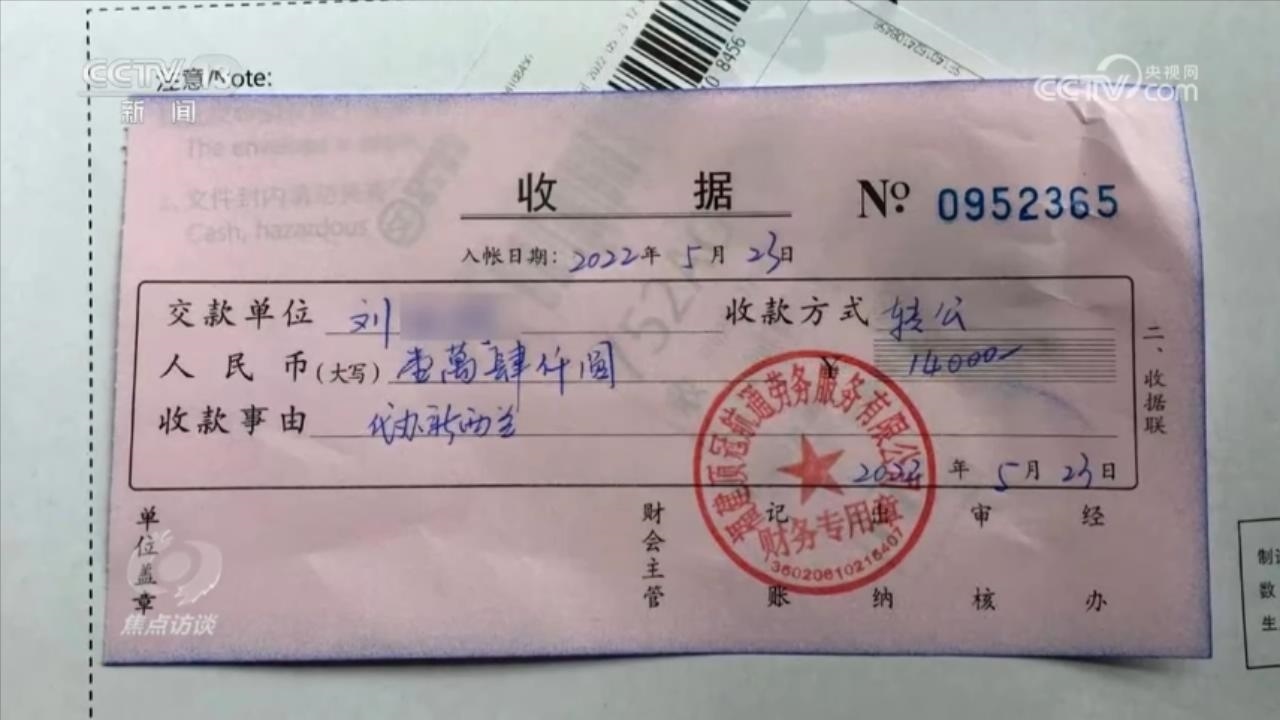 CCTV 13
新闻
央视网
CCTV.com
注意/Note:
The envelope
文件封内请勿夹寄
Cash, hazardous
8456
收 据
№ 0952365
入帐日期: 2022年 5月 23日
交款单位 刘 收款方式 转公
人民币(大写) 壹萬肆仟圆 ¥ 14000-
收款事由 代办新西兰
2022年 5月 23日
二、收据联
顶冠航通劳务服务有限公司
财务专用章
单位盖章 财会主管 记账 出纳 审核 经办
焦点访谈
数
生